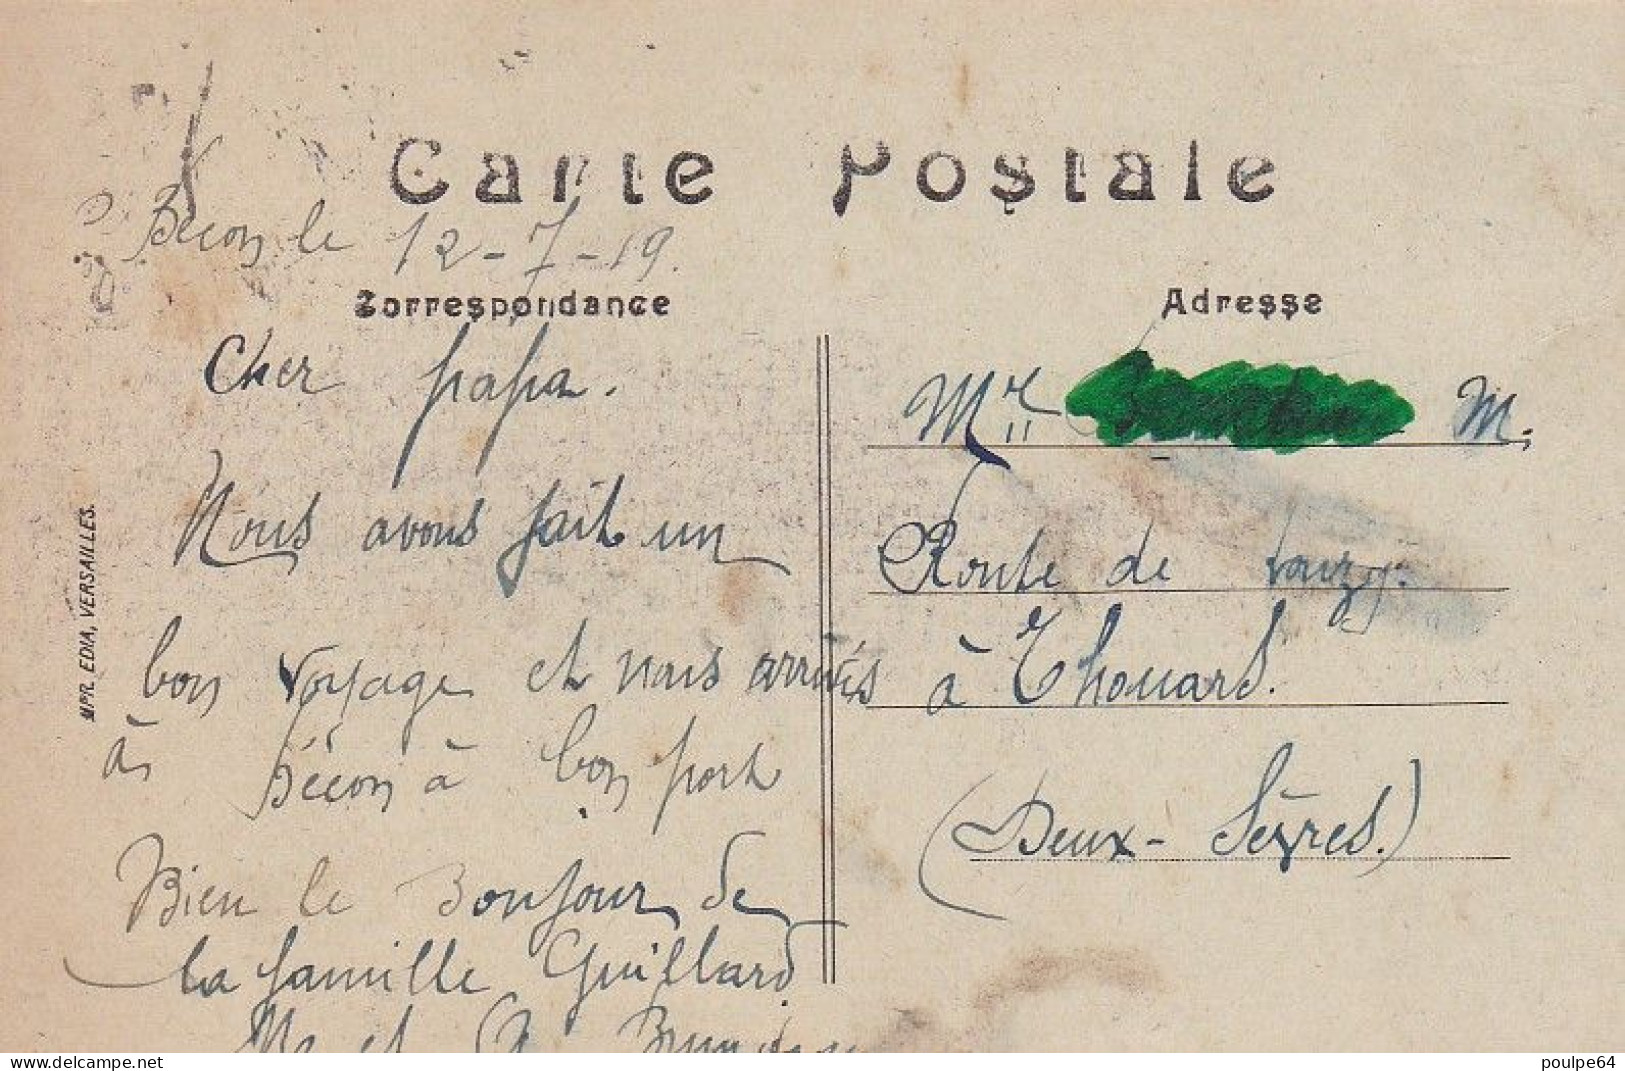 Carte Postale
Bécon le 12-7-19.
Correspondance
Cher papa.
Nous avons fait un
bon voyage et nais arrivés
à Bécon à bon port
Bien le Bonjour de
la famille Guillard
Me et
Adresse
Mr M.
Route de
à Thouars.
(Deux-Sèvres.)
IMPR. EDIA, VERSAILLES.
delcampe.net
poulpe64